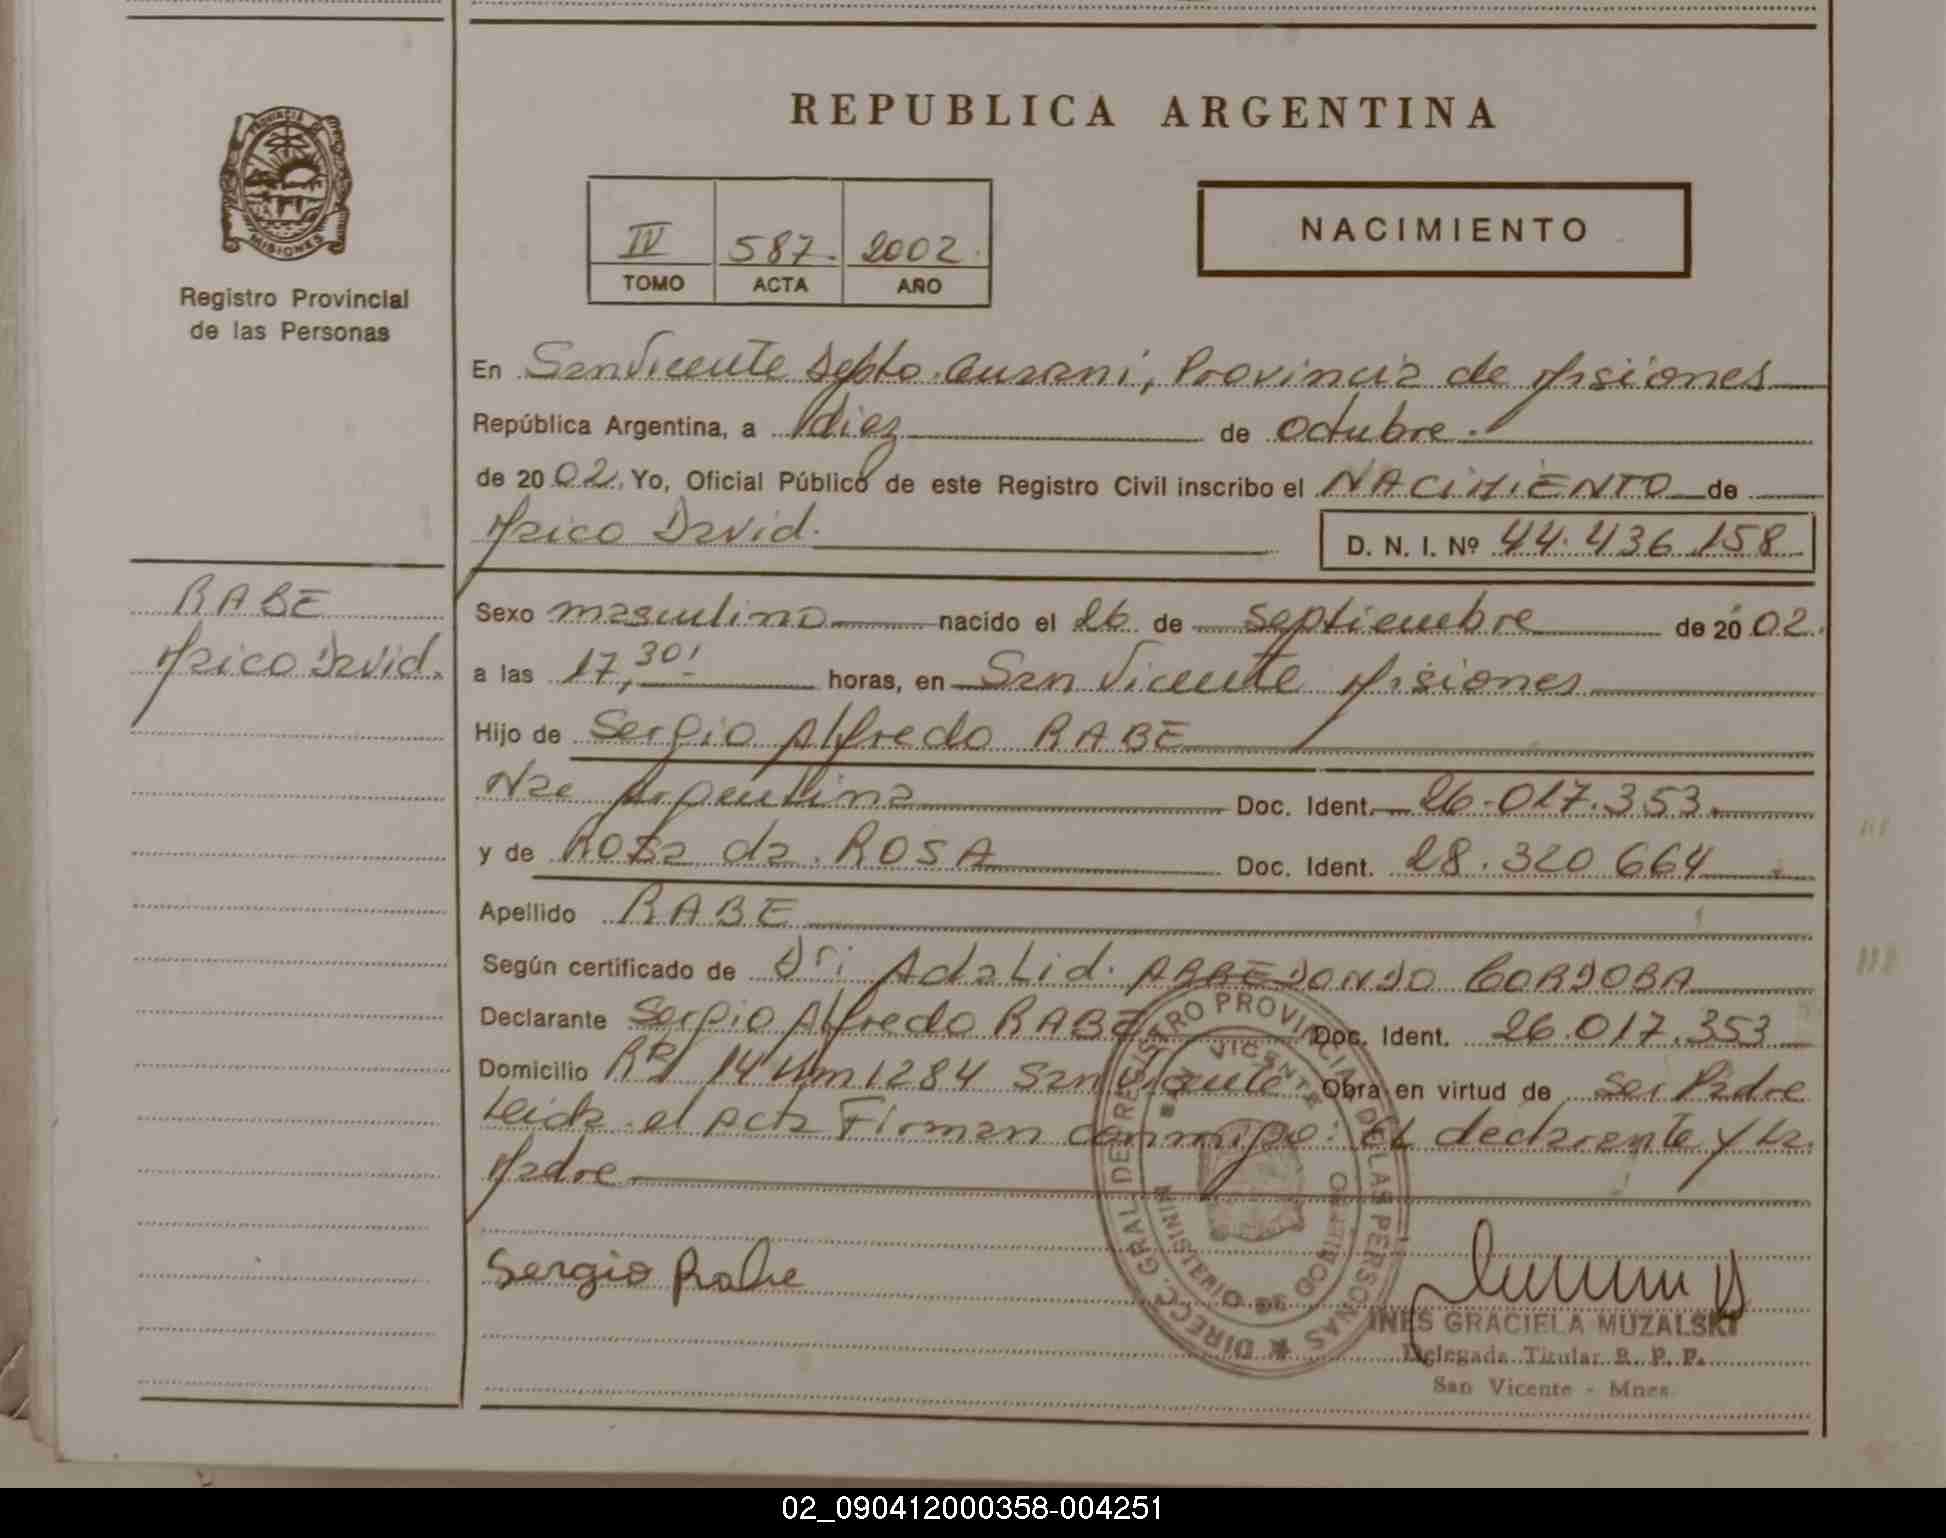 REPUBLICA ARGENTINA
PROVINCIA DE MISIONES
Registro Provincial
de las Personas
IV 587. 2002.
TOMO ACTA AÑO
NACIMIENTO
En San Vicente Depto. Guarani, Provincia de Misiones
República Argentina, a diez de octubre.
de 2002. Yo, Oficial Público de este Registro Civil inscribo el NACIMIENTO de
Marco David.
D. N. I. Nº 44.436.158
RABE
Marco David.
Sexo masculino nacido el 26 de septiembre de 2002.
a las 17,30' horas, en San Vicente Misiones
Hijo de Sergio Alfredo RABE
Nac Argentina Doc. Ident. 26.017.353.
y de Rosa da. ROSA Doc. Ident. 28.320.664
Apellido RABE
Según certificado de Dr: Adalid. ARREDONDO CORDOBA
Declarante Sergio Alfredo RABE Doc. Ident. 26.017.353
Domicilio 14 Km 1284 San Vicente Obra en virtud de ser Padre
Leida el Acta Firman conmigo: el declarante y la
Madre
Sergio Rabe
DIRECC. GRAL. DE REGISTRO PROVINCIAL DE LAS PERSONAS
SAN VICENTE
MINISTERIO DE GOBIERNO
INES GRACIELA MUZALSKI
Delegada Titular R. P. P.
San Vicente - Mnes.
02_090412000358-004251